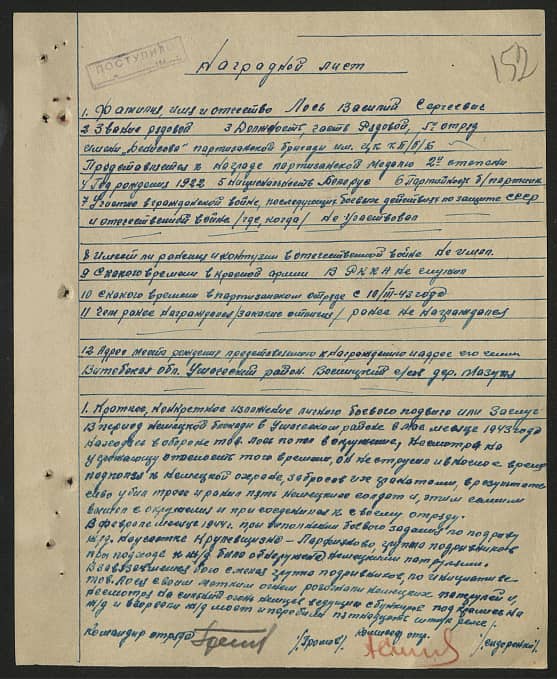 ПОСТУПИЛО
152
Наградной лист
1. Фамилия, имя и отчество Лось Василий Сергеевич
2 Звание рядовой 3 Должность, часть Рядовой, 5го отряд
имени партизанской бригады им. ЦК КП/б/Б
Представляется к награде партизанской медалью 2ой степени
4 Год рождения 1922 5 Национальность Белорус 6 Партийность б/партиен
7 Участие в гражданской войне, последующих боевых действиях по защите СССР
и отечественной войне /где, когда/ Не Участвовал
8 Имеет ли ранения и контузии в отечественной войне Не имел.
9 С какого времени в красной армии В РККА не служил
10 С какого времени в партизанском отряде С 10/III-43 года
11 Чем ранее награждался /за какие отличия/ ранее не награждался
12 Адрес места рождения представляемого к награждению и адрес его семьи
Витебская обл. Ушачский район. с/сов дер.
1. Краткое, конкретное изложение личного боевого подвига или заслуг
В период немецкой блокады в Ушачском районе в мае месяце 1943 года
находясь в обороне тов. Лось попал в окружение, несмотря на
опасность того времени, он не струсил и в ночное время
подполз к немецкой охране, забросал их гранатами, в результате
убил трое и ранил пять немецких солдат и, этим самым
вышел с окружения и присоединился к своему отряду.
В феврале месяце 1944 г. при выполнении боевого задания по подрыву
ж/д. На участке - группа подрывников
при подходе к ж/д была обнаружена немецкими патрулями.
группа подрывников, по инициативе
тов. Лося своим метким огнем немецких патрулей и,
несмотря на сильный огонь немцев с бункеров на
ж/д и взорвали ж/д мост и перебили пятнадцать штук рельс.
Командир отряда /Громов/ Комиссар отр. /Сидоренко/